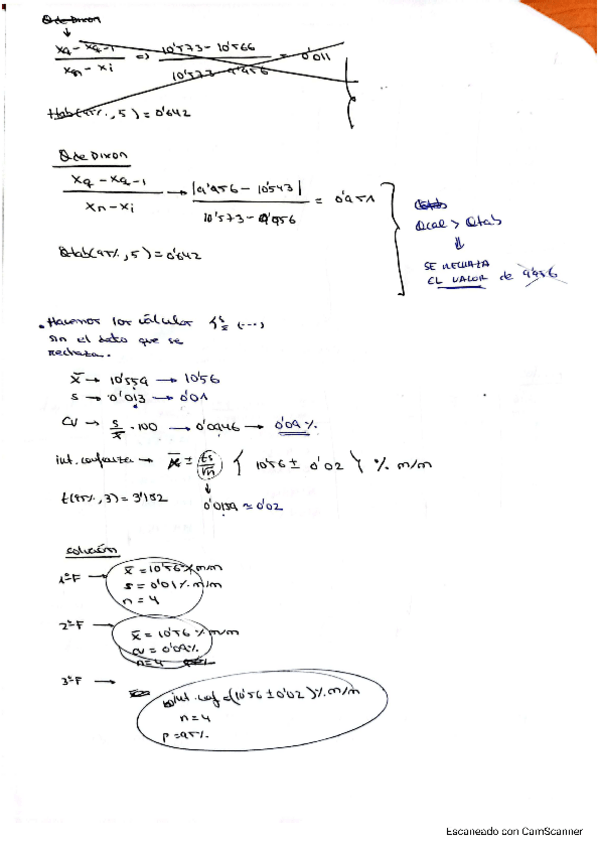 Q de Dixon
↓
xq - xq-1 / xn - xi => 10'573 - 10'566 / 10'573 - 9'956 = 0'011
Qtab (95%, 5) = 0'642
Q de DIXON
xq - xq-1 / xn - xi → |9'956 - 10'543| / 10'573 - 9'956 = 0'951
Qcal > Qtab
⇓
SE RECHAZA
EL VALOR de 9'956
Qtab (95%, 5) = 0'642
· Hacemos los cálculos (...)
sin el dato que se
rechaza.
x̄ → 10'559 → 10'56
s → 0'013 → 0'01
CV → s/x̄ · 100 → 0'0946 → 0'09%
int. confianza → x̄ ± ts/√n { 10'56 ± 0'02 } % m/m
↓
t(95%, 3) = 3'182
0'0159 ≈ 0'02
solución
1ºF → x̄ = 10'56 % m/m
s = 0'01 % m/m
n = 4
2ºF → x̄ = 10'56 % m/m
CV = 0'09%
n = 4
3ºF →
int. conf = (10'56 ± 0'02) % m/m
n = 4
p = 95%
Escaneado con CamScanner